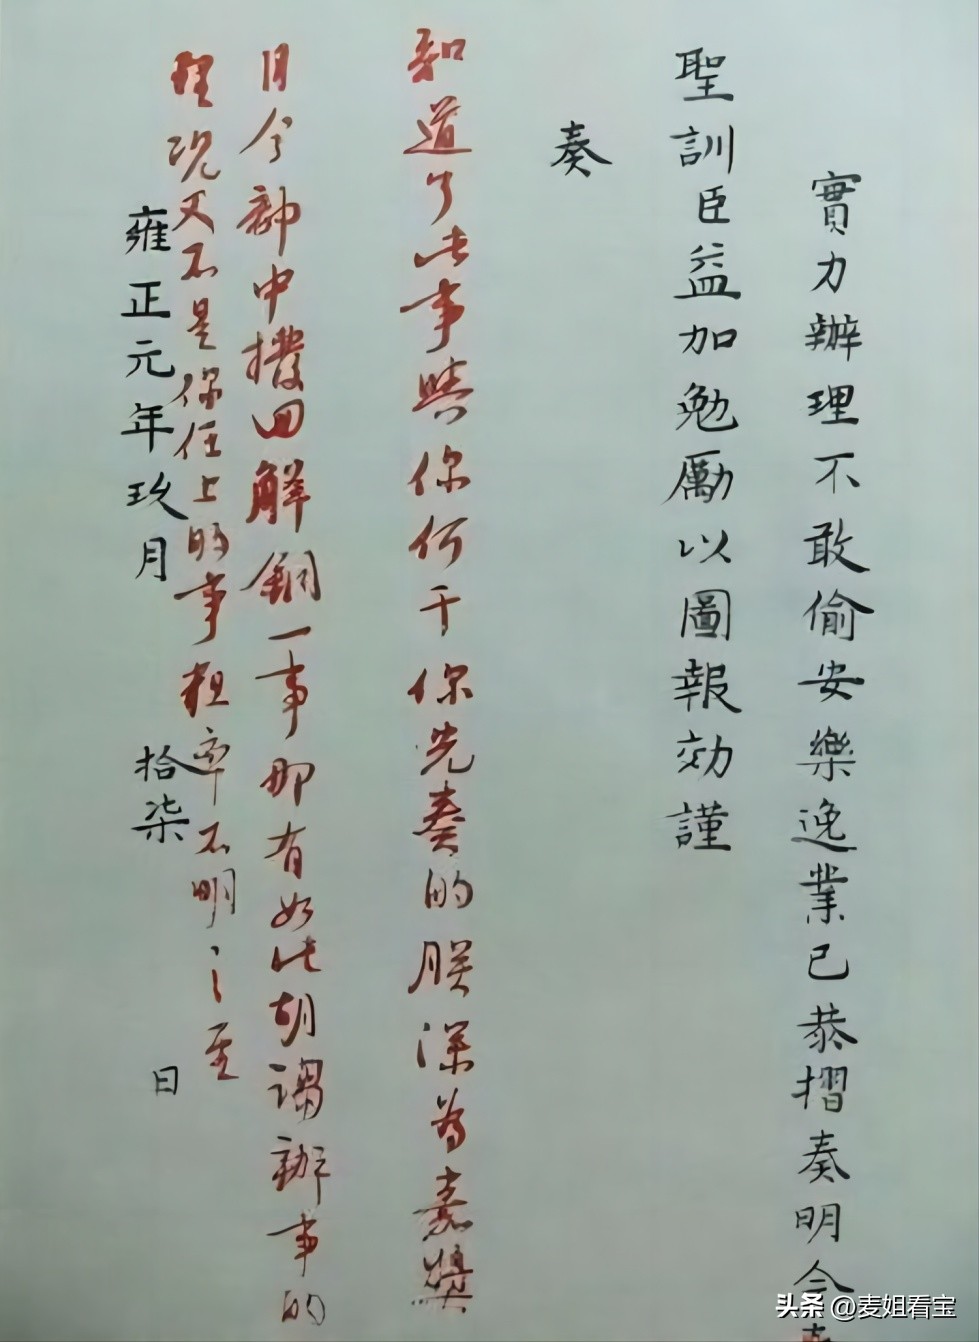 實力辦理不敢偷安樂逸業已恭摺奏明今
聖訓臣益加勉勵以圖報効謹
奏
知道了此事與你何干你先奏的朕深為嘉獎
目今部中撥回解銅一事那有如此胡謅辦事的
理况又不是你任上的事粗率不明之至
雍正元年玖月 拾柒 日
头条 @麦姐看宝